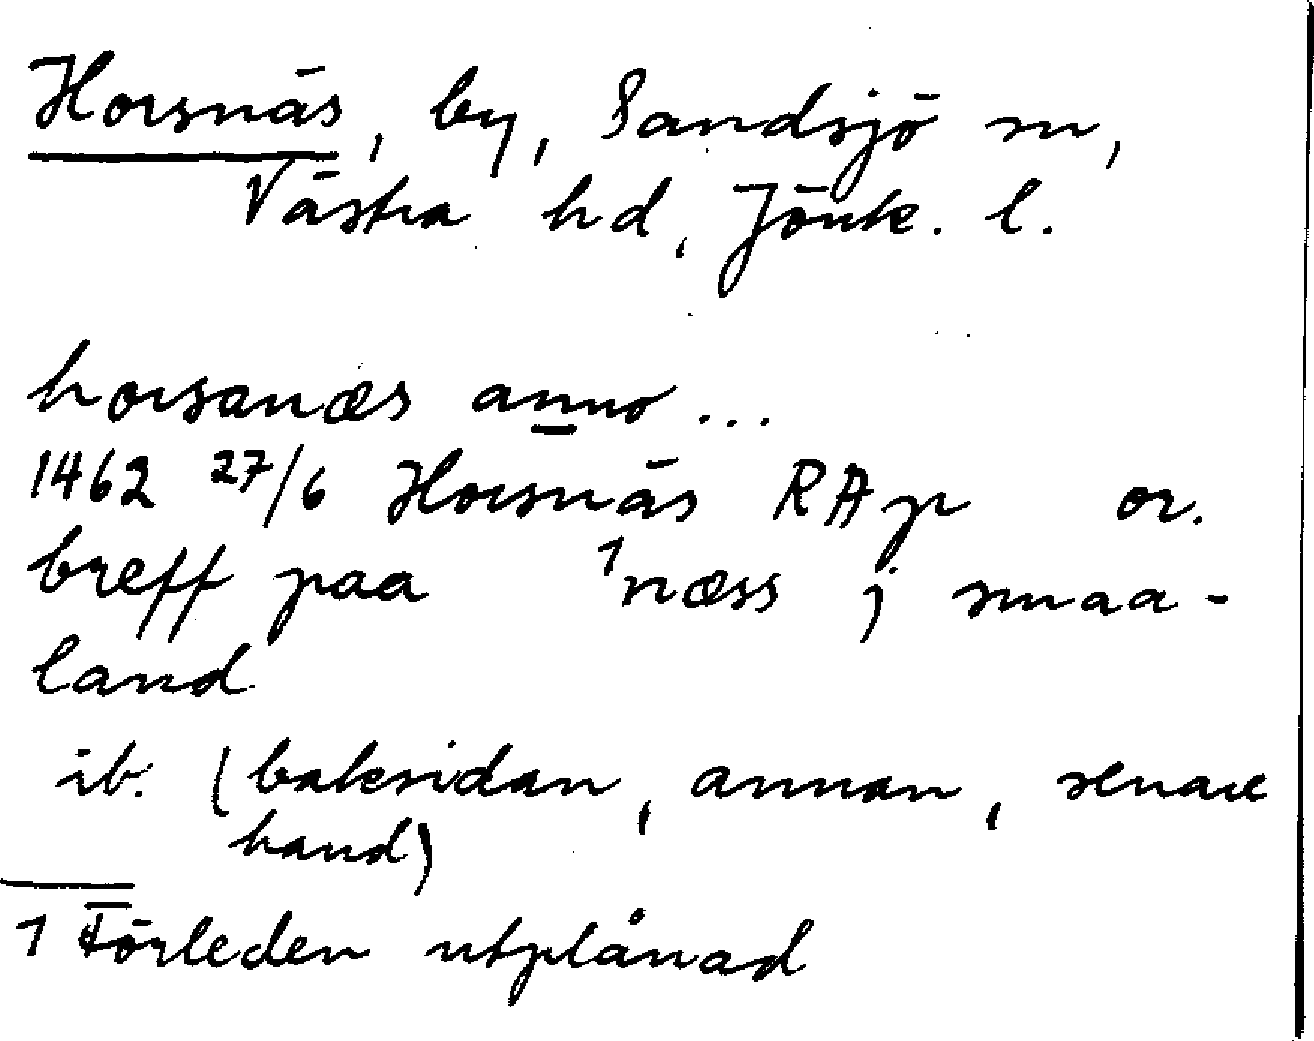 Horsnäs, by, Sandsjö sn,
Västra hd, Jönk. l.
horsanæs anno ...
1462 27/6 Horsnäs RAp or.
breff paa ¹næss j smaa-
land
ib. (baksidan, annan, senare
hand)
1 Förleden utplånad